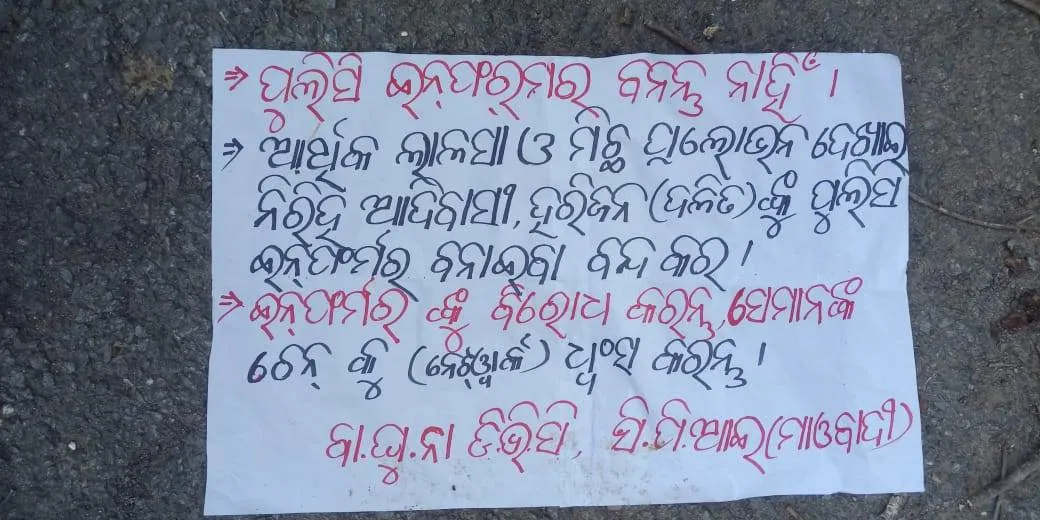 ⇒ ପୁଲିସି ଇନ୍‌ଫର୍‌ମର ବନନ୍ତୁ ନାହିଁ ।
⇒ ଆର୍ଥିକ ଲାଳସା ଓ ମିଚ୍ଛ ପ୍ରଲୋଭନ ଦେଖାଇ
ନିରିହ ଆଦିବାସୀ, ହରିଜନ (ଦଳିତ) ଙ୍କୁ ପୁଲିସି
ଇନ୍‌ଫର୍ମର୍ ବନାଇବା ବନ୍ଦ କର ।
⇒ ଇନ୍‌ଫର୍ମର୍ ଙ୍କୁ ବିରୋଧ କରନ୍ତୁ, ସେମାନଙ୍କ
ଚେନ୍ କୁ (ନେଟ୍ୱାର୍କ) ଧ୍ୱଂସ କରନ୍ତୁ ।
ବା.ଘୁ.ନା ଡି.ଭି.ସି, ସି.ପି.ଆଇ (ମାଓବାଦୀ)